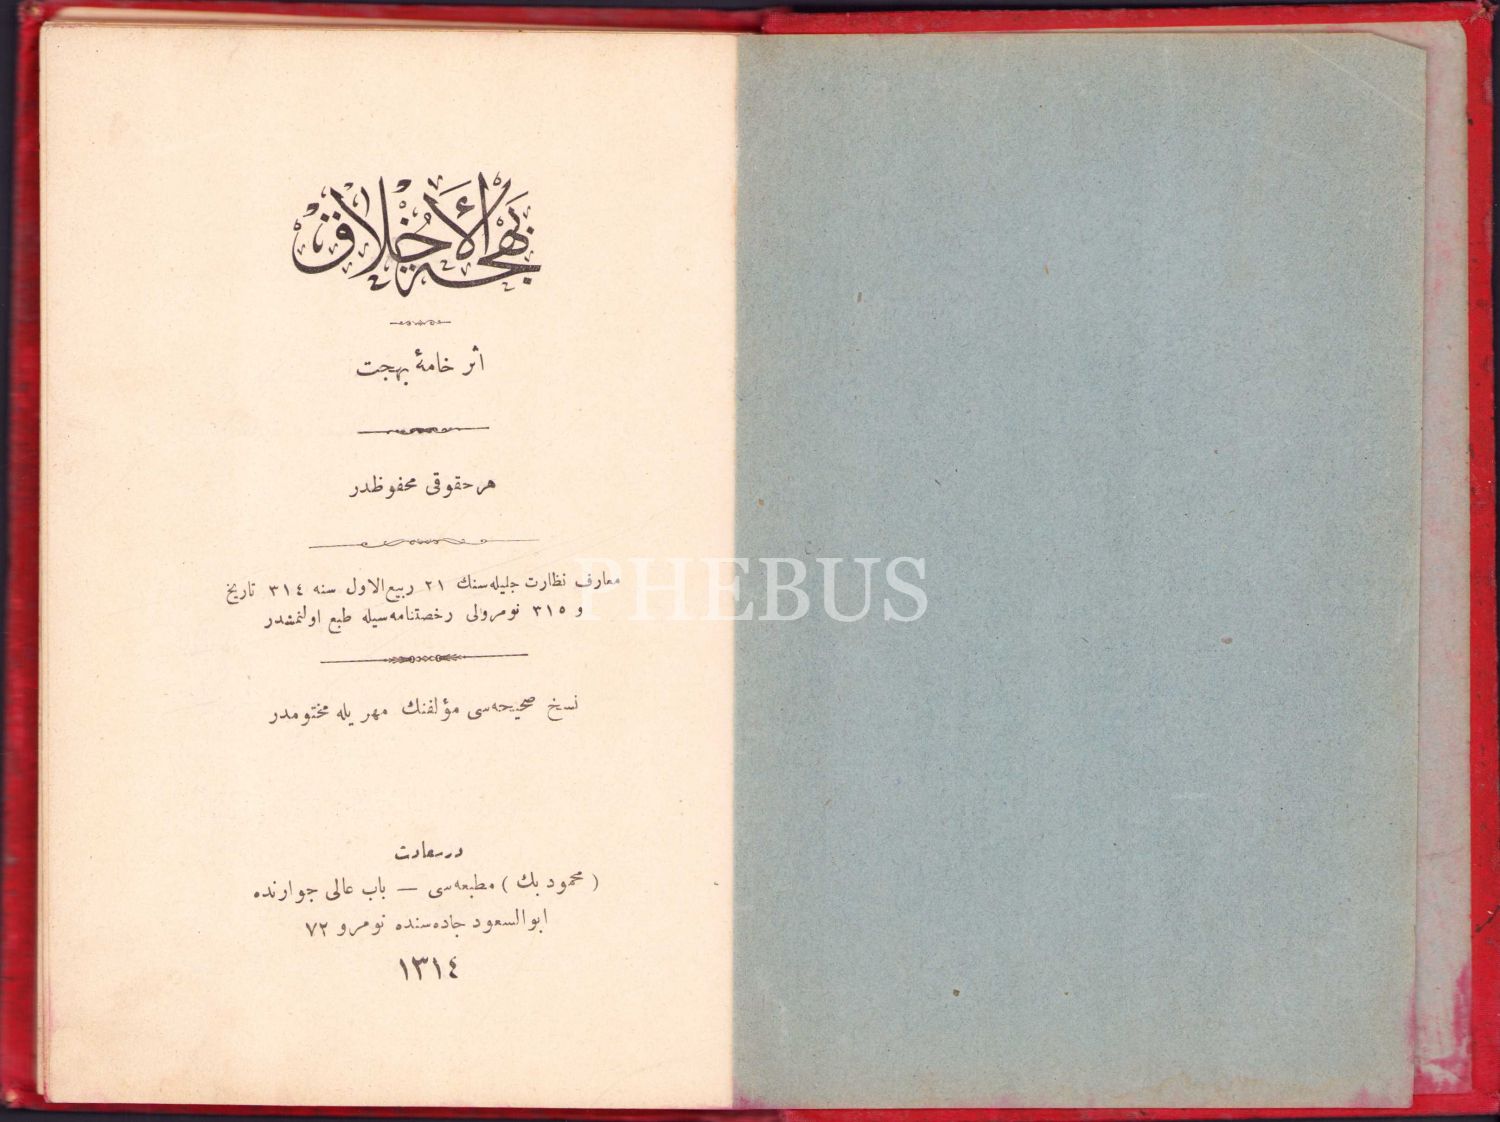 بَهْجَةُ الْأَخْلَاق
اثر خامهٔ بهجت
هر حقوقی محفوظدر
معارف نظارت جلیله‌سنك ٢١ ربیع‌الاول سنه ٣١٤ تاریخ
و ٣١٥ نومرولی رخصتنامه‌سیله طبع اولنمشدر
نسخ صحیحه‌سی مؤلفنك مهریله مختومدر
درسعادت
( محمود بك ) مطبعه‌سی — باب عالی جوارنده
ابوالسعود جاده‌سنده نومرو ٧٢
١٣١٤
PHEBUS